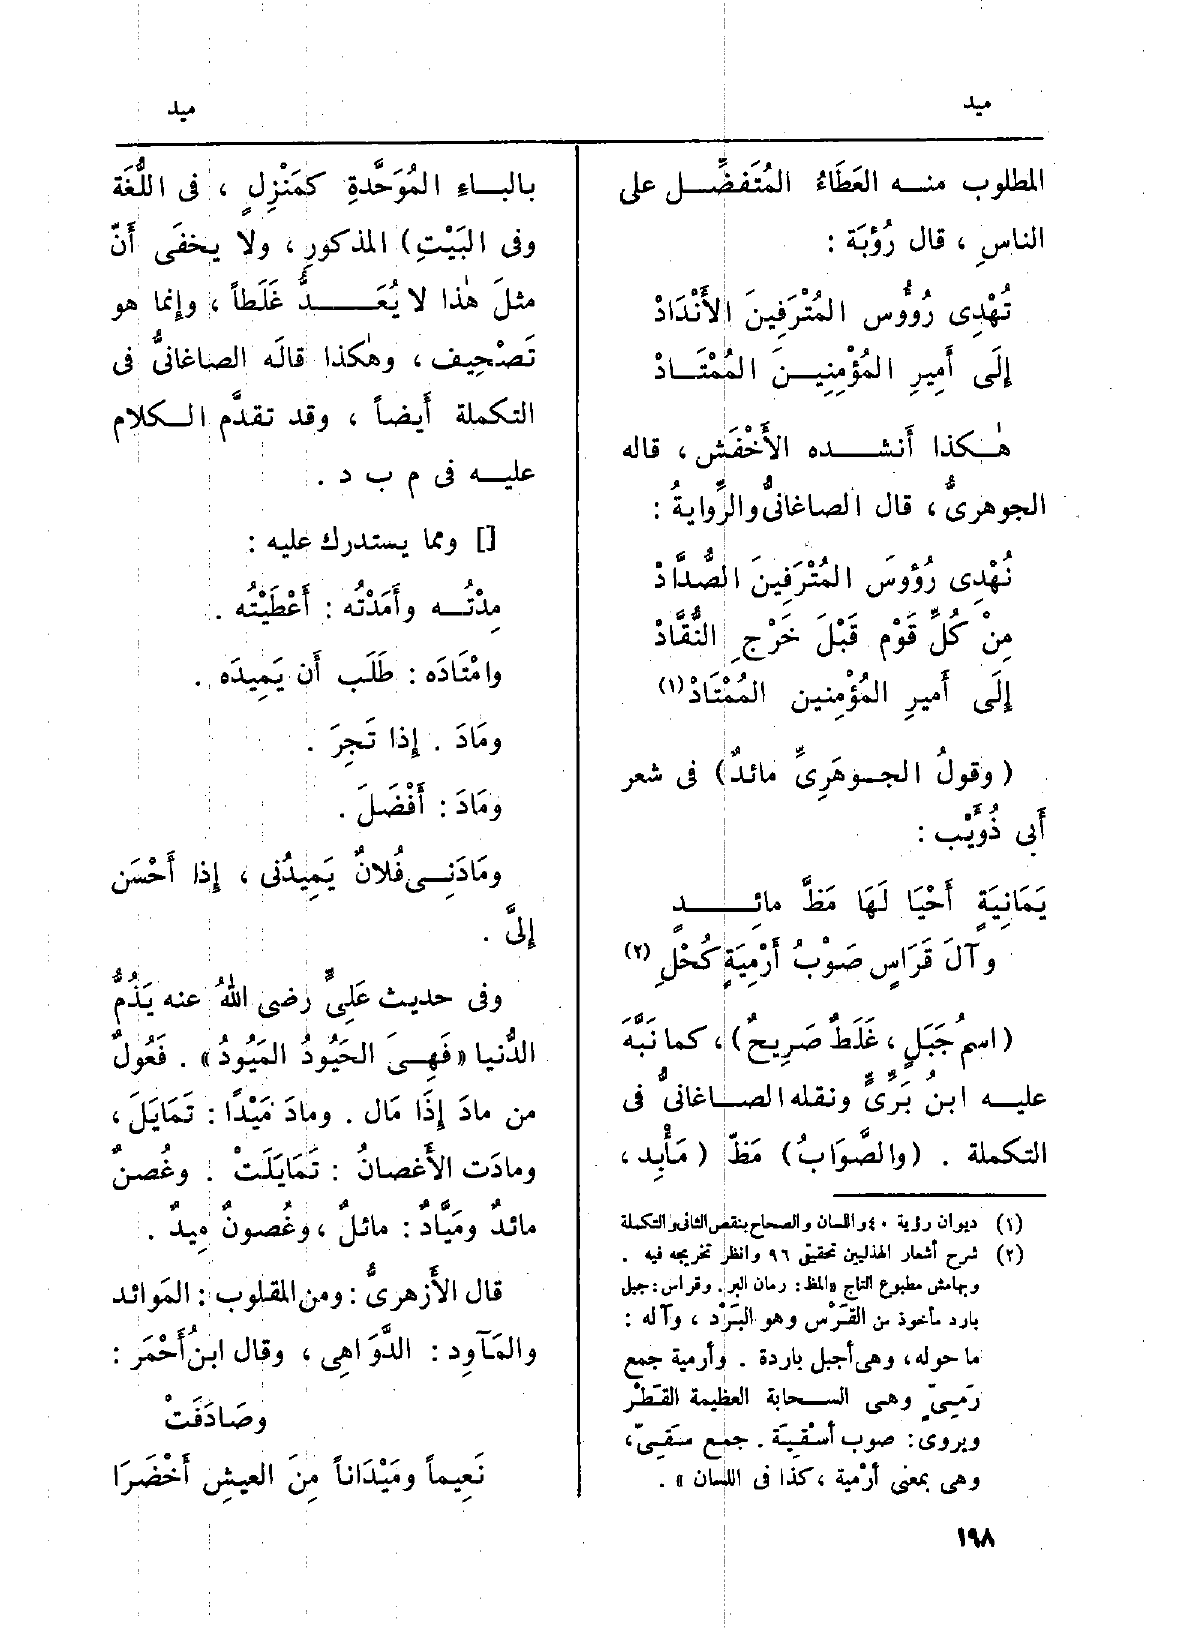 ميد
ميد
المطلوب منه العَطَاءُ المُتَفضِّل على
الناسِ ، قال رُؤْبَة :
تُهْدِى رُؤُوس المُتْرَفِينَ الأَنْدَادْ
إِلَى أَمِيرِ المُؤْمِنِينَ المُمْتَادْ
هٰكذا أَنشده الأَخْفَش ، قاله
الجوهرىُّ ، قال الصاغانىُّ والرِّوايةُ :
نُهْدِى رُؤوسَ المُتْرَفِينَ الصُّدَّادْ
مِنْ كُلِّ قَوْم قَبْلَ خَرْجِ النُّقَّادْ
إِلَى أَميرِ المُؤْمِنين المُمْتَادْ(١)
( وقولُ الجوهَرِىِّ مائدٌ) فى شعر
أَبى ذُؤَيْب :
يَمَانِيَةٍ أَحْيَا لَهَا مَظَّ مائِدٍ
وآلَ قَرَاسٍ صَوْبُ أَرْمِيَةٍ كُحْلِ (٢)
(اسمُ جَبَلٍ ، غَلَطٌ صَرِيحٌ) ، كما نَبَّهَ
عليه ابنُ بَرِّىٍّ ونقله الصاغانىُّ فى
التكملة . (والصَّوَابُ) مَظّ ( مَأْبِد ،
(١) ديوان رؤبة ٤٠ واللسان والصحاح بنقص الثانى والتكملة
(٢) شرح أشعار الهذليين تحقيقى ٩٦ وانظر تخريجه فيه .
وبهامش مطبوع التاج «المظ : رمان البر . وقراس : جبل
بارد مأخوذ من القَرْس وهو البَرْد ، وآله :
ما حوله، وهى أجبل باردة . وأرمية جمع
رَمِىّ وهى السحابة العظيمة القَطْر
ويروى : صوب أسْقِيَة . جمع سَقِىّ،
وهى بمعنى أرْمية ، كذا فى اللسان » .
بالباءِ المُوَحَّدةِ كمَنْزِلٍ ، فى اللُّغَة
وفى البَيْتِ) المذكورِ ، ولا يخفَى أَنّ
مثلَ هٰذا لا يُعَدُّ غَلَطاً ، وإِنما هو
تَصْحِيف ، وهٰكذا قالَه الصاغانىُّ فى
التكملة أَيضاً ، وقد تقدَّم الكلام
عليه فى م ب د .
[] ومما يستدرك عليه :
مِدْتُه وأَمَدْتُه : أَعْطَيْتُه .
وامْتَادَه : طَلَب أَن يَمِيدَه .
ومَادَ . إِذا تَجِرَ .
ومَادَ : أَفْضَلَ .
ومَادَنِى فُلانٌ يَمِيدُنى ، إِذا أَحْسَن
إِلىَّ .
وفى حديث عَلِىٍّ رضى اللهُ عنه يَذُمُّ
الدُّنيا «فَهِىَ الحَيُودُ المَيُودُ» . فَعُولٌ
من مادَ إِذَا مَال . ومادَ مَيْدًا : تَمَايَلَ ،
ومادَت الأَغصانُ : تَمَايَلَتْ . وغُصنٌ
مائدٌ ومَيَّادٌ : مائلٌ ، وغُصونٌ مِيدٌ .
قال الأَزهرىُّ : ومن المقلوب : المَوائد
والمَآوِد : الدَّوَاهِى ، وقال ابنُ أَحْمَر :
وصَادَفَتْ
نَعِيماً ومَيْدَاناً مِنَ العيشِ أَخْضَرَا
١٩٨